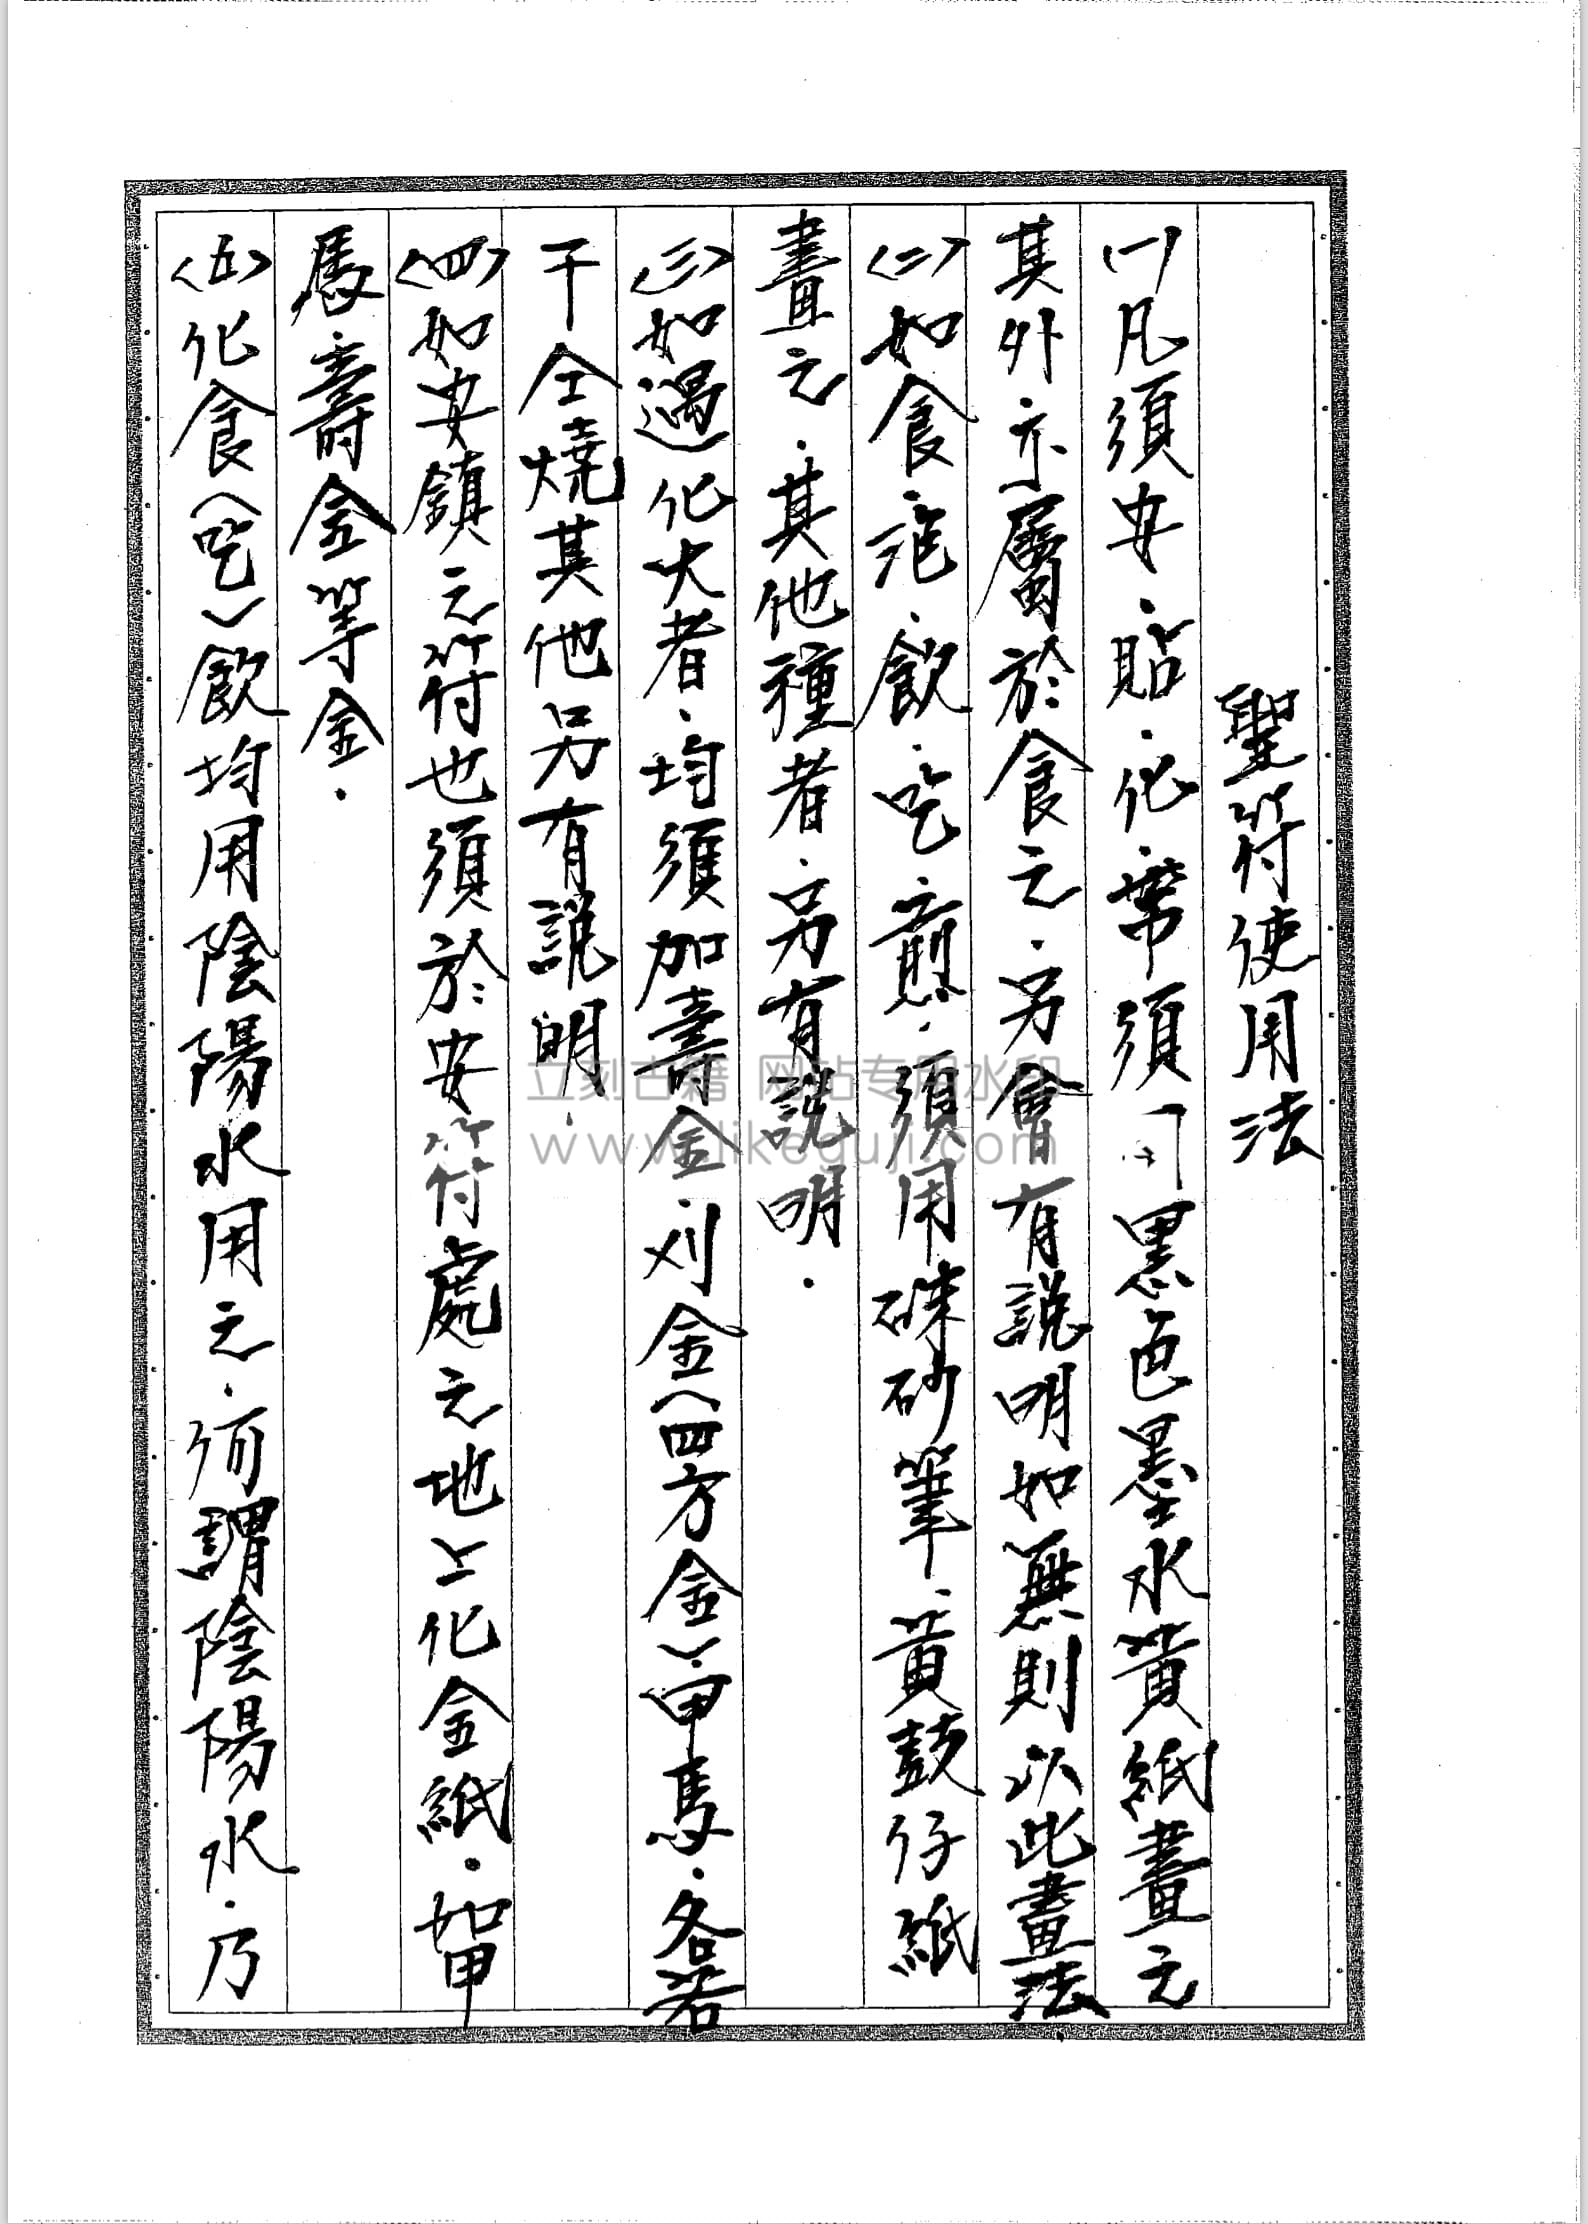 聖符使用法
(一)凡須安.貼.化.帶須用黑色墨水黃紙畫之
其外亦屬於食之.另會有説明如無則以此畫法.
(二)如食.飲.吃.煎.須用硃砂筆.黃鼓仔紙
畫之.其他種者.另有説明.
(三)如過化大者.均須加壽金.刈金(四方金).甲馬.各若
干仝燒其他另有説明.
(四)如安鎮之符也須於安符處之地上化金紙.如甲
馬壽金等金.
(五)化食(吃)飲均用陰陽水用之.所謂陰陽水.乃
立刻古籍 网站专用水印
www.likeguji.com